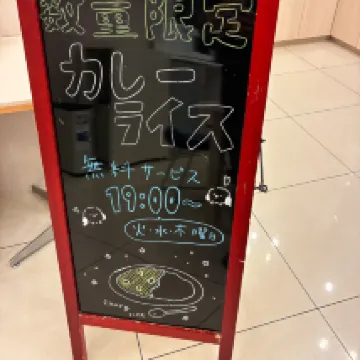 数量限定
カレー
ライス
無料サービス
19:00~
火・水・木曜日
curry rice